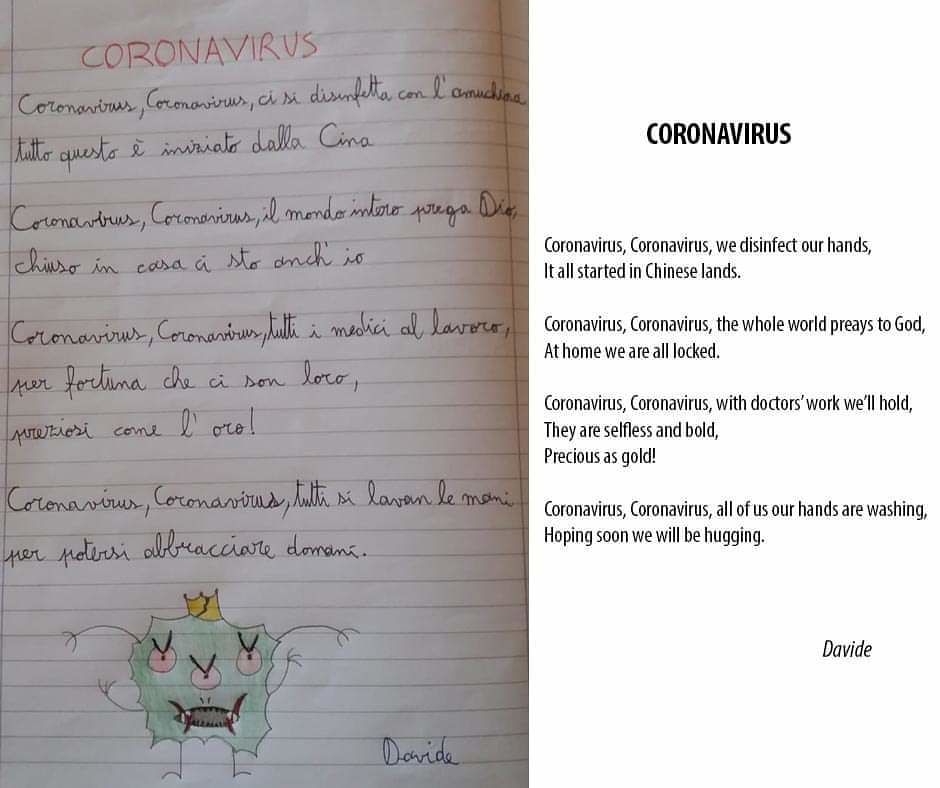 CORONAVIRUS
Coronavirus, Coronavirus, ci si disinfetta con l'amuchina
tutto questo è iniziato dalla Cina
Coronavirus, Coronavirus, il mondo intero prega Dio,
chiuso in casa ci sto anch'io
Coronavirus, Coronavirus, tutti i medici al lavoro,
per fortuna che ci son loro,
preziosi come l'oro!
Coronavirus, Coronavirus, tutti si lavan le mani
per potersi abbracciare domani.
Davide
CORONAVIRUS
Coronavirus, Coronavirus, we disinfect our hands,
It all started in Chinese lands.
Coronavirus, Coronavirus, the whole world preays to God,
At home we are all locked.
Coronavirus, Coronavirus, with doctors' work we'll hold,
They are selfless and bold,
Precious as gold!
Coronavirus, Coronavirus, all of us our hands are washing,
Hoping soon we will be hugging.
Davide